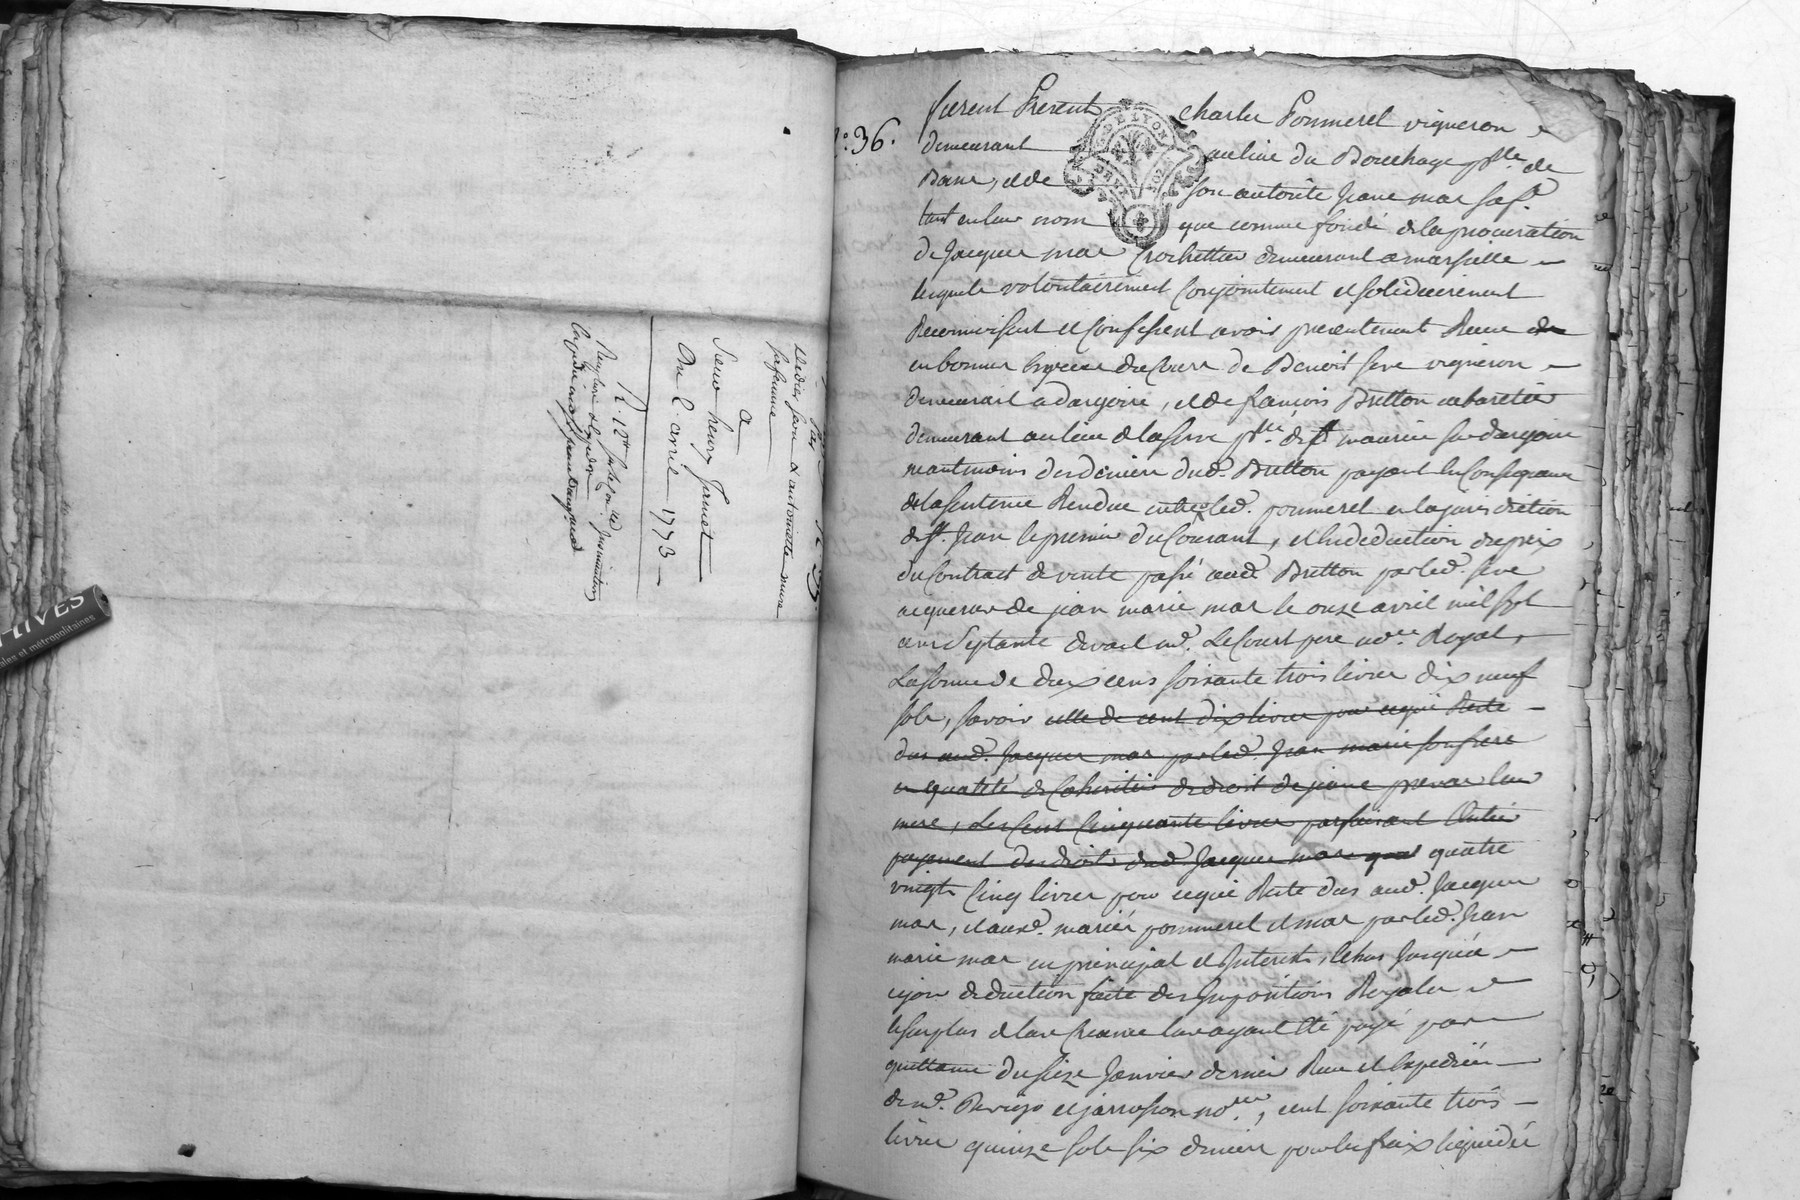 par
lledier, jean & antoinette mure
sa femme
a
Sieur henry Jamet
Du 2. avril 1773
R. 12# 
HIVES
ales et métropolitaines
n.º 36.
furent Present Charles Pommerel vigneron
demeurant au lieu du Bouchage psse de
et de son autorité Jeane mar sa fe.
tant en leur nom que comme fondé de la procuration
de Jacques mar Crochettier demeurant a marseille
lesquels volontairement Conjointement et solidairement
Reconnoissent et Confessent avoir presentement Receu
en bonnes especes du Cours de Benoit seve vigneron
demeurant a dargoire, et de françois Bretton cabaretier
demeurant au lieu de la psse de st maurice sur dargoire
neantmoins des deniers dud. Bretton payant en Consequence
de la sentence Rendue entre led. pommerel en la jurisdiction
de st. Jean le premier du Courant, et en deduction du prix
du Contract de vente passé aud. Bretton par led. seve
acquereur de jean marie mar le onze avril mil sept
cent septante devant me. LeCourt pere nore Royal,
La somme de deux cens soixante trois livres dix neuf
sols, savoir celle de cent dix livres pour ce qui Reste
dus aud. Jacques mar par led. Jean marie son frere
en qualité de Cohéritier de droit de jeane leur
mere, Les Cent Cinquante livres parfaisant Entier
payement des droits dud. Jacques mar quatre
vingt Cinq livres pour ce qui Reste dus aud. Jacques
mar, et aux d. mariés pommerel et mar par led. Jean
marie mar en principal et Interets, Echus Jusqu'a
ce jour deduction faite des Impositions Royales
le surplus de la Creance leur ayant été payé par
quittance du seize Janvier dernier Receu et Expediée
de me. et jarrosson nores, cent soixante trois
livres quinze sols six deniers pour les fraix liquidés